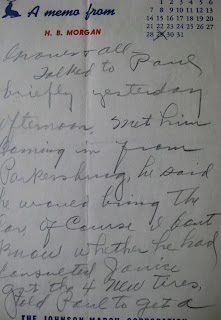 1 2 3 4 5 6
7 8 9 10 11 12 13
14 15 16 17 18 19 20
21 22 23 24 25 26 27
28 29 30 31
A memo from
H. B. MORGAN
& all
Talked to Paul
briefly yesterday
afternoon, met him
coming in from
Parkersburg, he said
he would bring the
car, of Course I don't
know whether he had
consulted Janice
get the 4 new tires,
told Paul to get a
THE JOHNSON MARCH CORPORATION